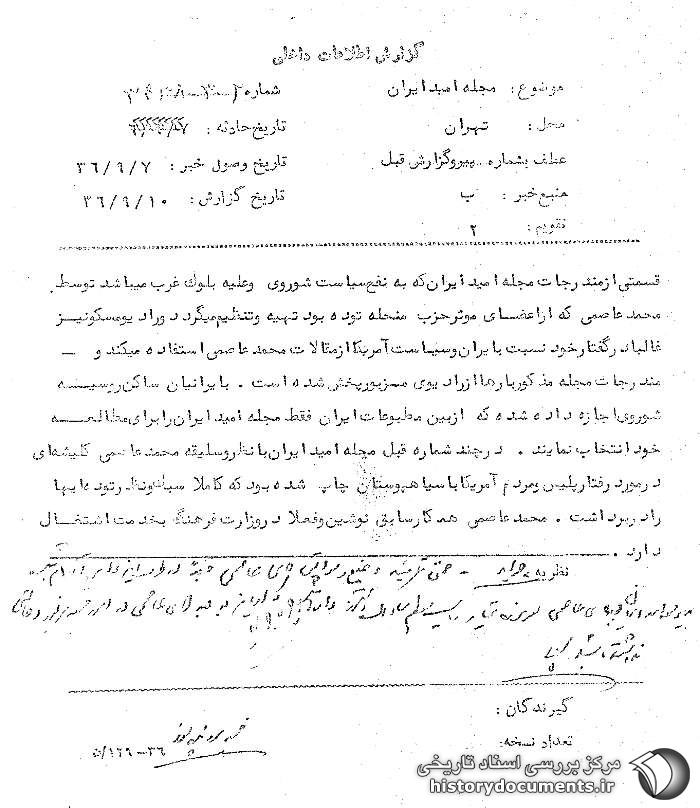 گزارش اطلاعات داخلی
موضوع: مجله امید ایران
شماره
محل: تهران
تاریخ حادثه:
عطف بشماره . پیرو گزارش قبل
تاریخ وصول خبر: ۳۶/۹/۷
منبع خبر: ب
تاریخ گزارش: ۳۶/۹/۱۰
تقویم: ۲
قسمتی از مندرجات مجله امید ایران که به نفع سیاست شوروی وعلیه بلوک غرب میباشد توسط
محمد عاصمی که از اعضای موثر حزب منحله توده بود تهیه وتنظیم میگردد ورادیو مسکو نیز
غالبا در گفتار خود نسبت بایران وسیاست آمریکا از مقالات محمد عاصمی استفاده میکند و –
مندرجات مجله مذکور بارها از رادیوی مزبور پخش شده است . بایرانیان ساکن روسیه
شوروی اجازه داده شده که از بین مطبوعات ایران فقط مجله امید ایران را برای مطالعه
خود انتخاب نمایند . در چند شماره قبل مجله امید ایران با نظر وسلیقه محمد عاصمی کلیشه‌ای
در مورد رفتار پلیس ومردم آمریکا با سیاهپوستان چاپ شده بود که کاملا سبک ونظر توده‌ایها
را دربرداشت . محمد عاصمی همکار سابق نوشین وفعلا در وزارت فرهنگ بخدمت اشتغال
دارد .
نظریه :
گیرندگان :
تعداد نسخه:
۵/۱۶۹-۳۶
مرکز بررسی اسناد تاریخی
historydocuments.ir